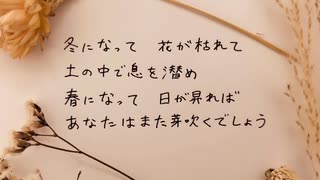 冬になって　花が枯れて
土の中で息を潜め
春になって　日が昇れば
あなたはまた芽吹くでしょう